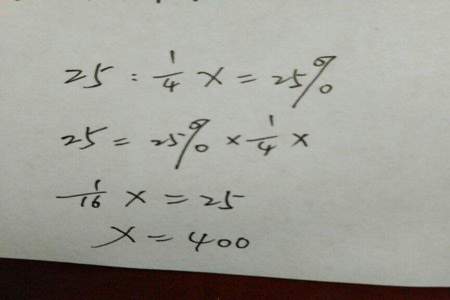 25 : 1/4 x = 25%
25 = 25% × 1/4 x
1/16 x = 25
x = 400